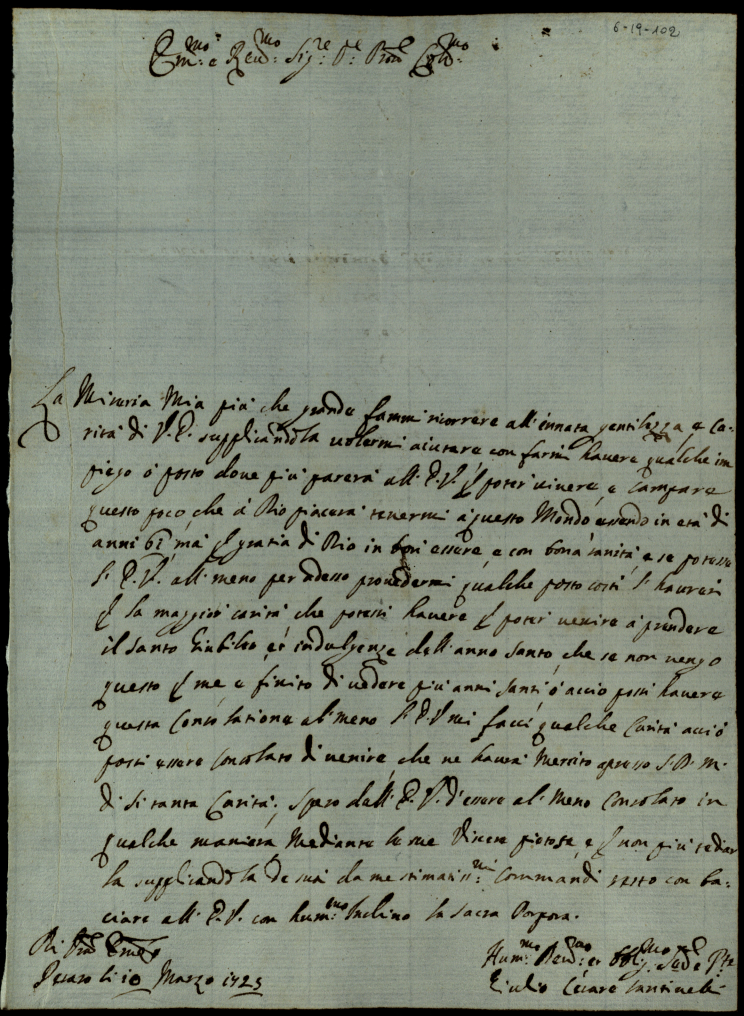 6-19-102
Em:mo e Rev:mo Sig:re P:e Pron Col:mo
La Miseria Mia più che grande fammi ricorrere all'innata gentilezza, e Ca-
rità di V. E. supplicandola volermi aiutare con farmi havere qualche im
piego ò posto dove più parerà all'E. V. p poter vivere, e Campare
questo poco, che à Dio piacerà tenermi à questo Mondo essendo in età di
anni 61, mà p gratia di Dio in bon essere, e con bona sanità, e se potesse
l'E. V. all meno per adesso provedermi qualche posto costì l'haurei
p la maggior carità che potessi havere p poter venire à prendere
il Santo Giubileo, et indulgenze dell'anno Santo, che se non vengo
questo p me è finito di vedere più anni Santi, ò acciò possi havere
questa Consolatione al meno l'E. V. mi facci qualche Carità acciò
possi essere Consolato di venire, che ne haverà Merito apresso S. D. M.
di sì tanta Carità, spero dall'E. V. d'essere al meno Consolato in
qualche maniera Mediante le sue Viscere pietose, e p non più tediar
la supplicandola de suoi da me stimatiss:mi Commandi resto con ba-
ciare all'E. V. con hum:mo Inclino la Sacra Porpora.
Di V:ra Em:za
Pesaro li 10 Marzo 1725
Hum:mo Dev:mo et Obblig:mo Se:re
Giulio Cesare Santinelli